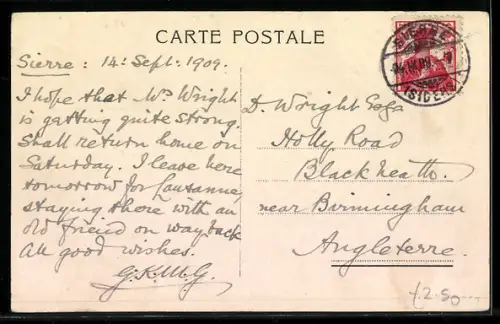 CARTE POSTALE
Sierre: 14: Sept: 1909.
I hope that Mrs Wright
is getting quite strong.
Shall return home on
Saturday. I leave here
tomorrow for Lausanne,
staying there with an
old friend on way back
All good wishes.
G.K.M.G.
D. Wright Esqr
Holly Road
Blackheath.
near Birmingham
Angleterre.
SIERRE
(SIDERS)
£2.50